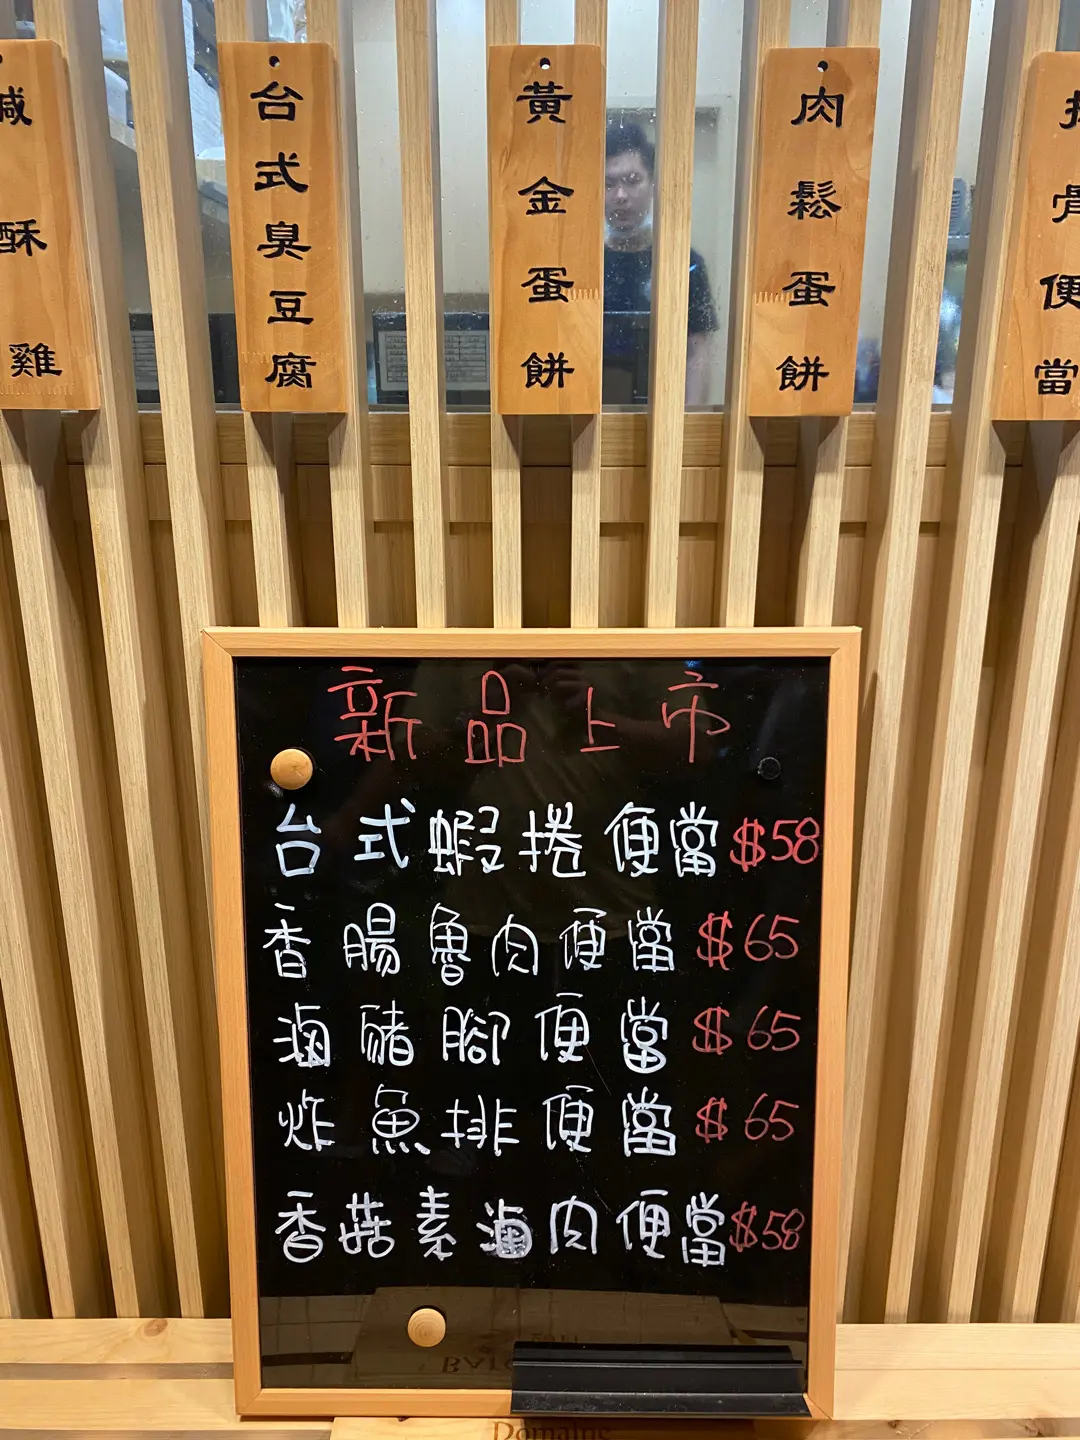 鹹酥雞
台式臭豆腐
黃金蛋餅
肉鬆蛋餅
排骨便當
新品上市
台式蝦捲便當$58
香腸魯肉便當$65
滷豬腳便當$65
炸魚排便當$65
香菇素滷肉便當$58
Domaine